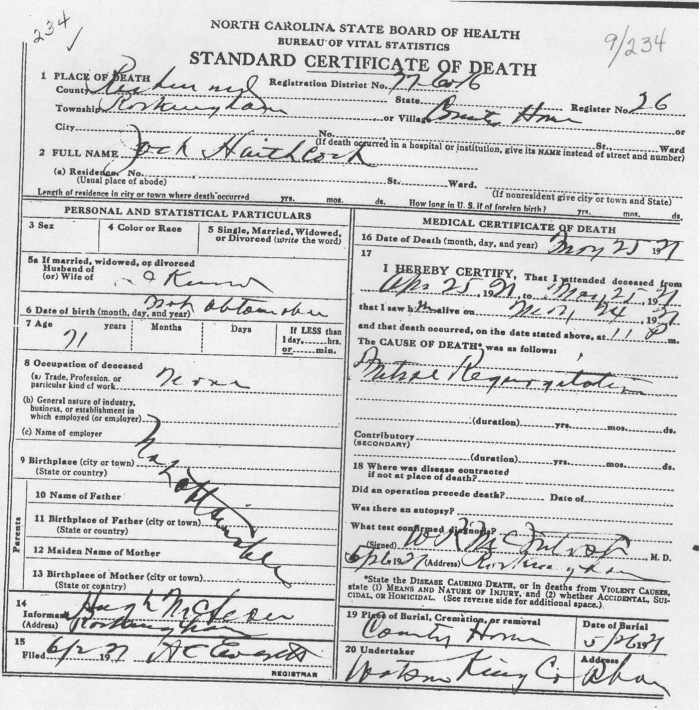 234
9/234
NORTH CAROLINA STATE BOARD OF HEALTH
BUREAU OF VITAL STATISTICS
STANDARD CERTIFICATE OF DEATH
1 PLACE OF DEATH
County Registration District No. State Register No. 26
Township Rockingham or Village County Home or
City No. St. Ward
(If death occurred in a hospital or institution, give its NAME instead of street and number)
2 FULL NAME Jack Haithcock
(a) Residence, No. St. Ward.
(Usual place of abode) (If nonresident give city or town and State)
Length of residence in city or town where death occurred yrs. mos. ds. How long in U. S. if of foreign birth? yrs. mos. ds.
PERSONAL AND STATISTICAL PARTICULARS
3 Sex 4 Color or Race 5 Single, Married, Widowed, or Divorced (write the word)
5a If married, widowed, or divorced
Husband of
(or) Wife of
6 Date of birth (month, day, and year) Not obtainable
7 Age 71 years Months Days If LESS than 1 day,.....hrs. or.....min.
8 Occupation of deceased
(a) Trade, Profession, or particular kind of work None
(b) General nature of industry, business, or establishment in which employed (or employer)
(c) Name of employer
9 Birthplace (city or town)
(State or country)
Not obtainable
Parents
10 Name of Father
11 Birthplace of Father (city or town)
(State or country)
12 Maiden Name of Mother
13 Birthplace of Mother (city or town)
(State or country)
14
Informant Hugh
(Address) Rockingham
15
Filed 6/2 1927 A C Everett
REGISTRAR
MEDICAL CERTIFICATE OF DEATH
16 Date of Death (month, day, and year) May 25 27
17
I HEREBY CERTIFY, That I attended deceased from
Apr 25, 1927 to May 25, 1927
that I saw him alive on May 24, 1927
and that death occurred, on the date stated above, at 11 P m.
The CAUSE OF DEATH* was as follows:
Mitral Regurgitation
(duration) yrs. mos. ds.
Contributory
(SECONDARY)
(duration) yrs. mos. ds.
18 Where was disease contracted
if not at place of death?
Did an operation precede death? Date of
Was there an autopsy?
What test confirmed diagnosis?
(Signed) M. D.
1927 (Address) Rockingham
*State the DISEASE CAUSING DEATH, or in deaths from VIOLENT CAUSES,
state (1) MEANS AND NATURE OF INJURY, and (2) whether ACCIDENTAL, SUI-
CIDAL, or HOMICIDAL. (See reverse side for additional space.)
19 Place of Burial, Cremation, or removal Date of Burial
County Home 5/26 1927
20 Undertaker Address
Watson King Co